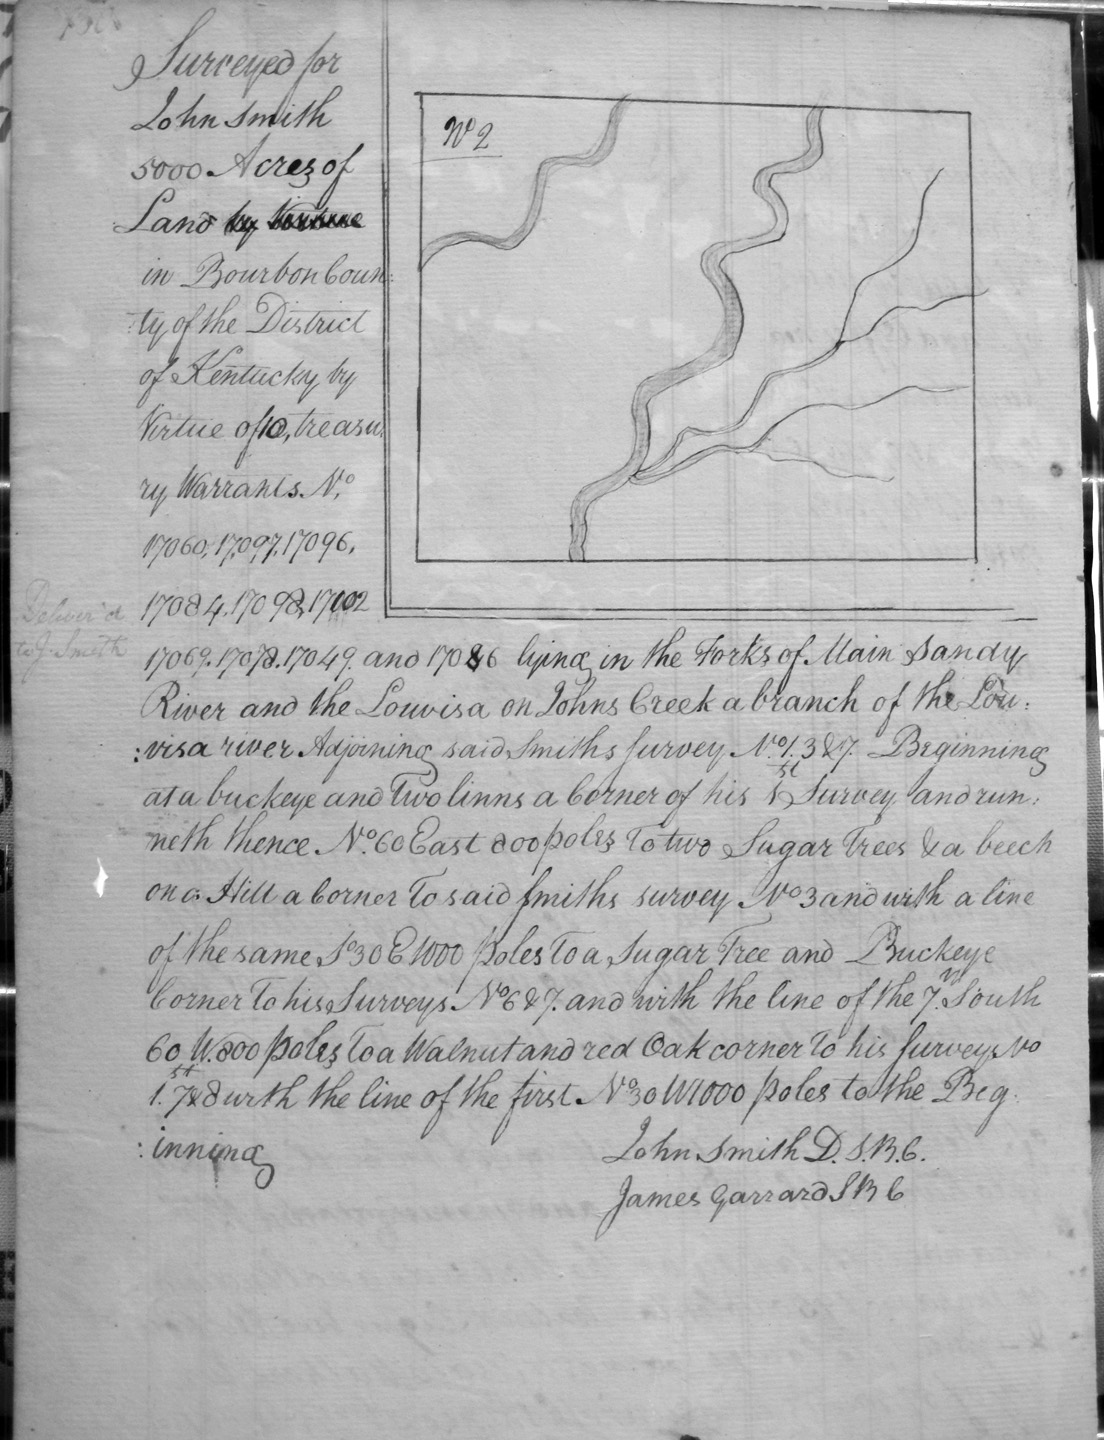 Surveyed for
John Smith
5000 Acres of
Land by Virtue
in Bourbon Coun:
ty of the District
of Kentucky by
Virtue of 10, treasu,
ry Warrants. No,
17060, 17,097, 17096,
17084. 17098, 17102
17069. 17078. 17049. and 17086 lying in the Forks of Main Sandy
River and the Louvisa on Johns Creek a branch of the Lou:
:visa river Adjoining said Smiths Survey No. 1. 3 & 7. Beginning
at a buckeye and Two linns a Corner of his 1st Survey and run:
neth thence No. 60 East 800 poles To two Sugar Trees & a beech
on a Hill a Corner To said Smiths survey No 3 and with a line
of the same So 30 E 1000 poles To a Sugar Tree and Buckeye
Corner To his Surveys No 6 & 7. and with the line of the 7. South
60 W. 800 poles To a Walnut and red Oak corner To his Surveys No
1. 7 & 8 with the line of the first No 30 W 1000 poles to the Beg
:inning
John Smith D. S. B. C.
James Garrard S B C
No 2
Deliver'd
to J. Smith